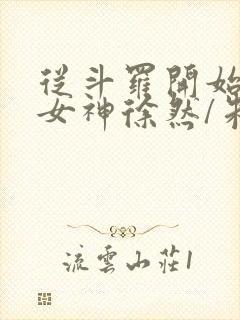 從斗羅開始
女神徐然/
流雲山莊1